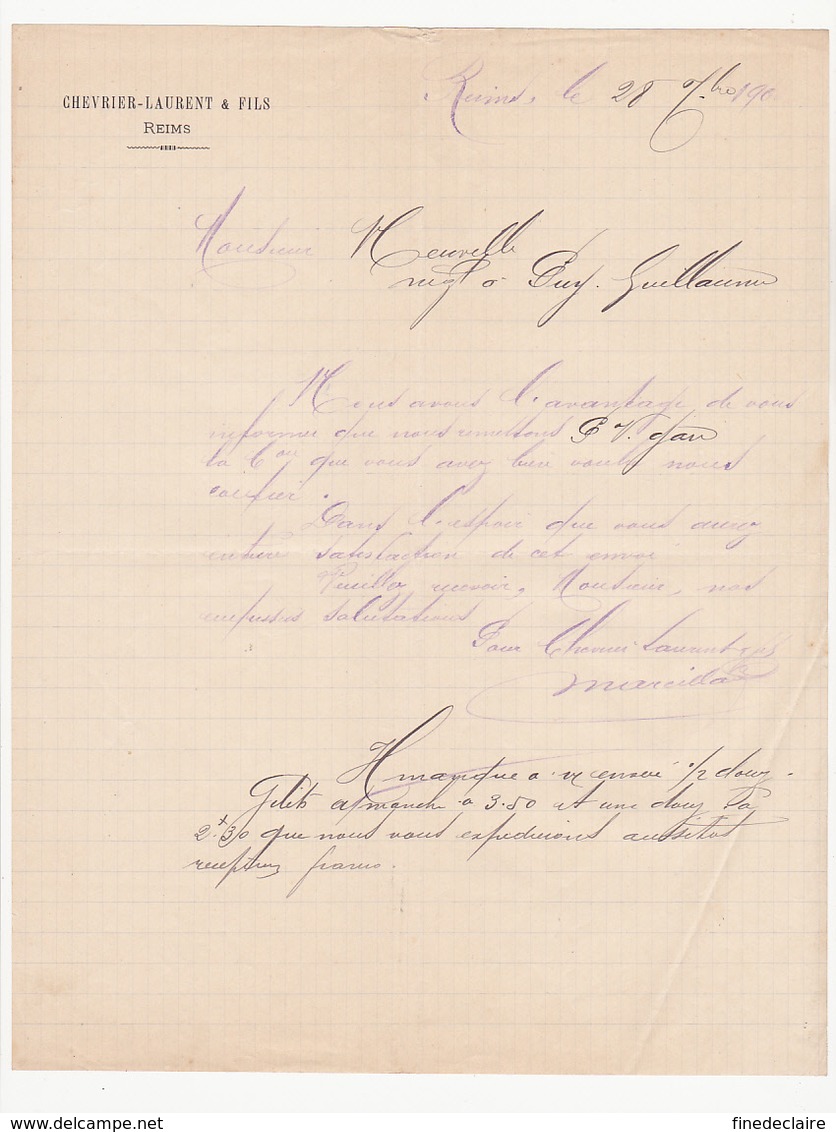 CHEVRIER-LAURENT & FILS
REIMS
Reims, le 28 7bre 190
Monsieur Neuville
negt à Puy-Guillaume
Nous avons l'avantage de vous
informer que nous remettons P. V. gare
la Cde que vous avez bien voulu nous
confier.
Dans l'espoir que vous aurez
entière satisfaction de cet envoi
Veuillez recevoir, Monsieur, nos
empressées salutations
Pour Chevrier Laurent & fils
Marcilla
Il manque à cet envoi 1/2 douz
Gilets à manche à 3.50 et une douz
2f30 que nous vous expédierons aussitôt
reception franco.
finedeclaire